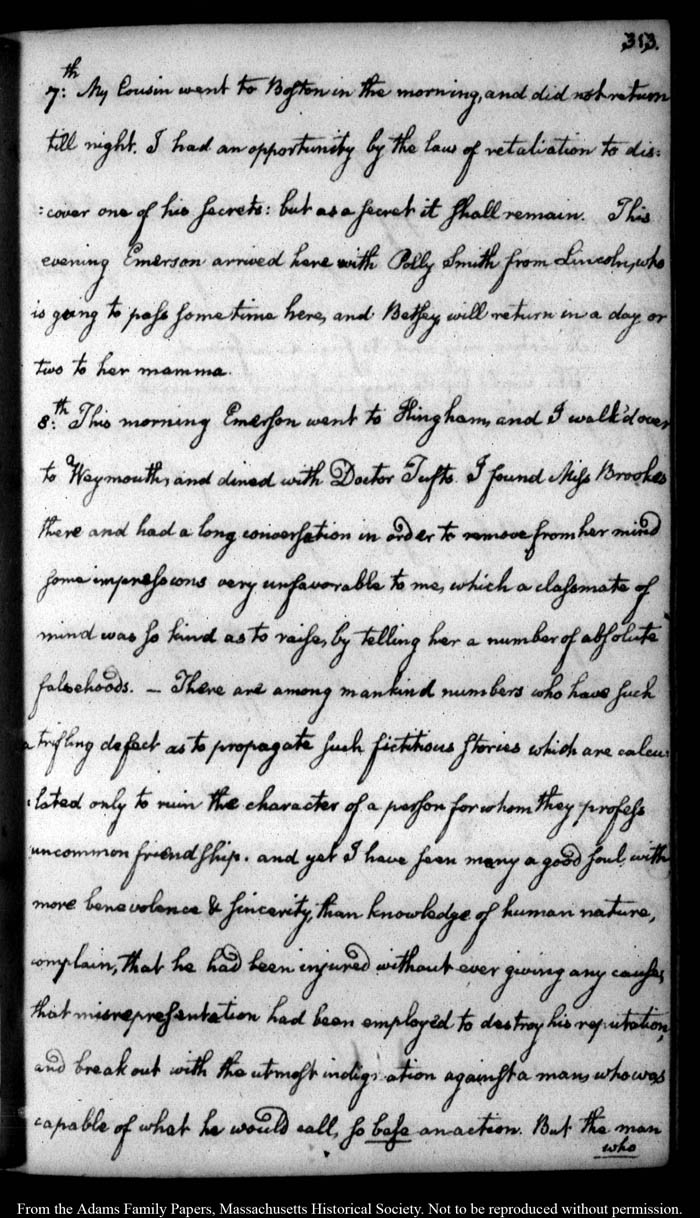 313.
7:th My Cousin went to Boston in the morning, and did not return
till night. I had an opportunity by the law of retaliation to dis:
:cover one of his secrets: but as a secret it shall remain. This
evening Emerson arrived here with Polly Smith from Lincoln, who
is going to pass some time here, and Betsey will return in a day or
two to her mamma.
8:th This morning Emerson went to Hingham, and I walk'd over
to Weymouth, and dined with Doctor Tufts. I found Miss Brookes
there and had a long conversation in order to remove from her mind
some impressions very unfavorable to me, which a classmate of
mind was so kind as to raise, by telling her a number of absolute
falsehoods. — There are among mankind numbers who have such
a trifling defect as to propagate such fictitious stories which are calcu:
:lated only to ruin the character of a person for whom they profess
uncommon friendship. and yet I have seen many a good soul, with
more benevolence & sincerity, than knowledge of human nature,
complain, that he had been injured without ever giving any cause,
that misrepresentation had been employ'd to destroy his reputation,
and break out with the utmost indignation against a man, who was
capable of what he would call, so base an action. But the man
who
From the Adams Family Papers, Massachusetts Historical Society. Not to be reproduced without permission.